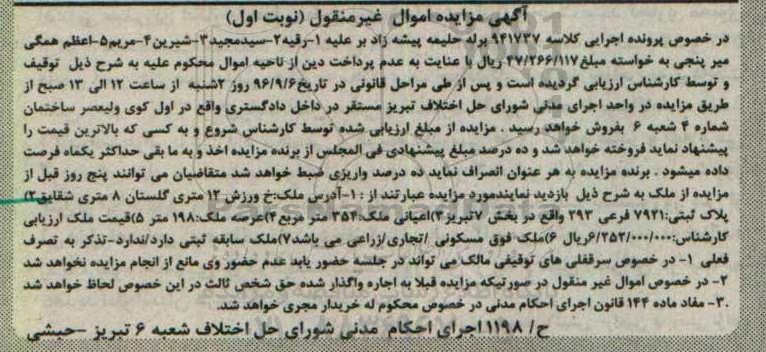 آگهی مزایده اموال غیرمنقول (نوبت اول)
در خصوص پرونده اجرایی کلاسه ۹۴۱۷۳۷ برله حلیمه پیشه زاد بر علیه ۱-رقیه۲-سیدمجید۳-شیرین۴-مریم۵-اعظم همگی
میر پنجی به خواسته مبلغ۴۷/۲۶۶/۱۱۷ ریال با عنایت به عدم پرداخت دین از ناحیه اموال محکوم علیه به شرح ذیل توقیف
و توسط کارشناس ارزیابی گردیده است و پس از طی مراحل قانونی در تاریخ۹۶/۹/۶ روز ۲شنبه از ساعت ۱۲ الی ۱۳ صبح از
طریق مزایده در واحد اجرای مدنی شورای حل اختلاف تبریز مستقر در داخل دادگستری واقع در اول کوی ولیعصر ساختمان
شماره ۴ شعبه ۶ بفروش خواهد رسید . مزایده از مبلغ ارزیابی شده توسط کارشناس شروع و به کسی که بالاترین قیمت را
پیشنهاد نماید فروخته خواهد شد و ده درصد مبلغ پیشنهادی فی المجلس از برنده مزایده اخذ و به ما بقی حداکثر یکماه فرصت
داده میشود . برنده مزایده به هر عنوان انصراف نماید ده درصد واریزی ضبط خواهد شد متقاضیان می توانند پنج روز قبل از
مزایده از ملک به شرح ذیل بازدید نمایندمورد مزایده عبارتند از :۱-آدرس ملک:خ ورزش ۱۲ متری گلستان ۸ متری شقایق۲)
پلاک ثبتی:۷۹۲۱ فرعی ۲۹۳ واقع در بخش ۷تبریز۳)اعیانی ملک:۳۵۴ متر مربع۴)عرصه ملک:۱۹۸ متر ۵)قیمت ملک ارزیابی
کارشناس:۶/۲۵۲/۰۰۰/۰۰۰ریال ۶)ملک فوق مسکونی /تجاری/زراعی می باشد۷)ملک سابقه ثبتی دارد/ندارد-تذکر به تصرف
فعلی ۱- در خصوص سرقفلی های توقیفی مالک می تواند در جلسه حضور یابد عدم حضور وی مانع از انجام مزایده نخواهد شد
۲- در خصوص اموال غیر منقول در صورتیکه مزایده قبلا به اجاره واگذار شده حق شخص ثالث در این خصوص لحاظ خواهد شد
.۳- مفاد ماده ۱۴۴ قانون اجرای احکام مدنی در خصوص محکوم له خریدار مجری خواهد شد.
ح/ ۱۱۹۸ اجرای احکام مدنی شورای حل اختلاف شعبه ۶ تبریز -حبشی